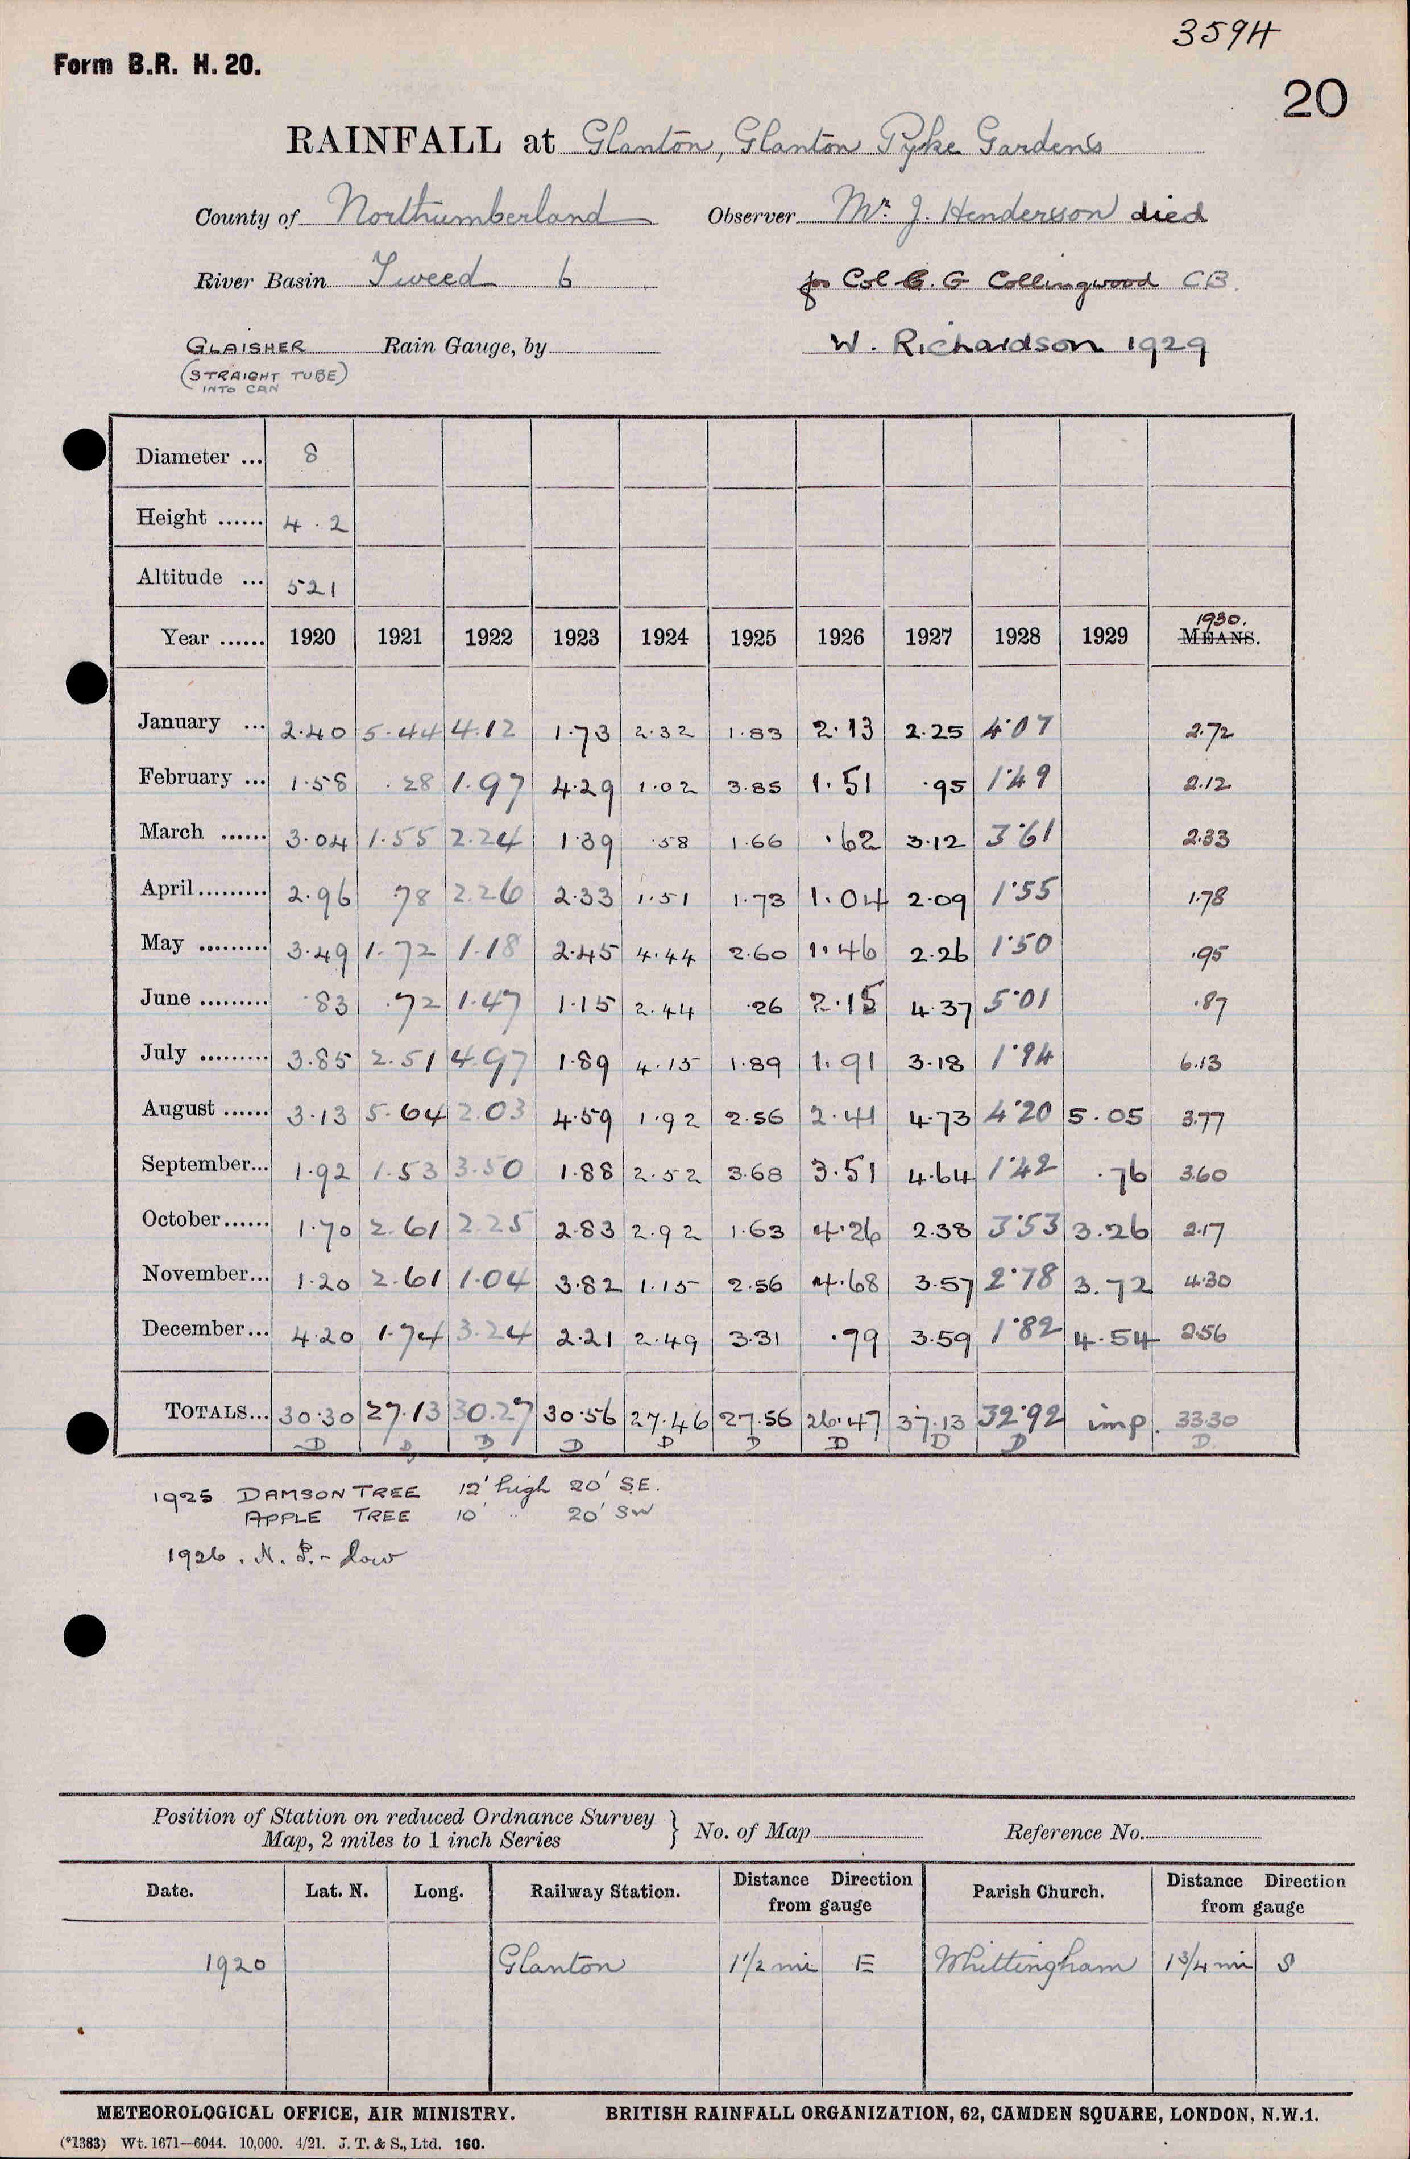 359H
Form B.R. H. 20.
20
RAINFALL at Glanton, Glanton Pyke Gardens
County of Northumberland Observer Mr. J. Henderson died
River Basin Tweed 6 for Col C. G Collingwood CB.
GLAISHER Rain Gauge, by W. Richardson 1929
(STRAIGHT TUBE)
INTO CAN
Diameter ... 8
Height ...... 4.2
Altitude ... 521
1930.
Year ...... 1920 1921 1922 1923 1924 1925 1926 1927 1928 1929 MEANS.
January ... 2.40 5.44 4.12 1.73 2.32 1.83 2.13 2.25 4.07 2.72
February ... 1.58 .28 1.97 4.29 1.02 3.85 1.51 .95 1.49 2.12
March ...... 3.04 1.55 2.24 1.39 .58 1.66 .62 3.12 3.61 2.33
April ......... 2.96 .78 2.26 2.33 1.51 1.73 1.04 2.09 1.55 1.78
May ......... 3.49 1.72 1.18 2.45 4.44 2.60 1.46 2.26 1.50 .95
June ......... .83 .72 1.47 1.15 2.44 .26 2.15 4.37 5.01 .87
July ......... 3.85 2.51 4.97 1.89 4.15 1.89 1.91 3.18 1.94 6.13
August ...... 3.13 5.64 2.03 4.59 1.92 2.56 2.41 4.73 4.20 5.05 3.77
September... 1.92 1.53 3.50 1.88 2.52 3.68 3.51 4.64 1.42 .76 3.60
October...... 1.70 2.61 2.25 2.83 2.92 1.63 4.26 2.38 3.53 3.26 2.17
November... 1.20 2.61 1.04 3.82 1.15 2.56 4.68 3.57 2.78 3.72 4.30
December... 4.20 1.74 3.24 2.21 2.49 3.31 .79 3.59 1.82 4.54 2.56
TOTALS... 30.30 27.13 30.27 30.56 27.46 27.56 26.47 37.13 32.92 imp. 33.30
D D D D D D D D D D
1925 DAMSON TREE 12' high 20' SE.
APPLE TREE 10' " 20' SW
1926. N. P. - Low
Position of Station on reduced Ordnance Survey
Map, 2 miles to 1 inch Series } No. of Map Reference No.
Date. Lat. N. Long. Railway Station. Distance Direction from gauge Parish Church. Distance Direction from gauge
1920 Glanton 1 1/2 mi E Whittingham 1 3/4 mi S
METEOROLOGICAL OFFICE, AIR MINISTRY. BRITISH RAINFALL ORGANIZATION, 62, CAMDEN SQUARE, LONDON, N.W.1.
(*1383) Wt. 1671—6044. 10,000. 4/21. J. T. & S., Ltd. 160.